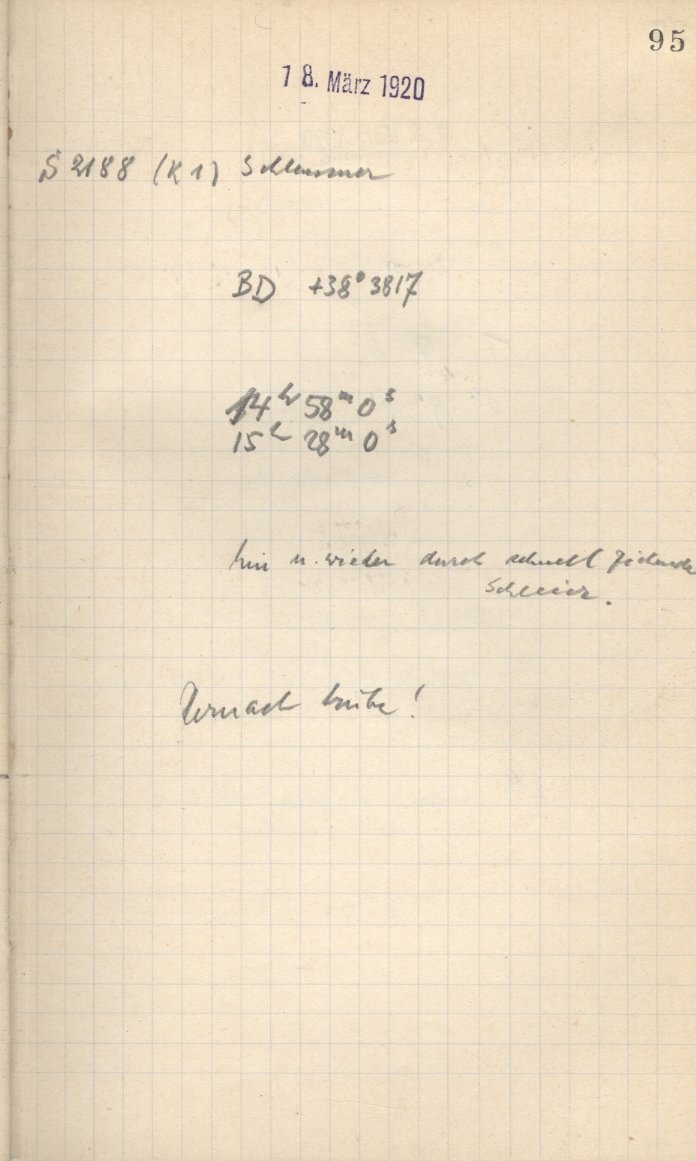 95
18. März 1920
S 2188 (K 1) Schleussner
BD +38° 3817
14ʰ 58ᵐ 0ˢ
15ʰ 28ᵐ 0ˢ
hin u. wieder durch schnell ziehende
Schleier.
Hernach trübe!